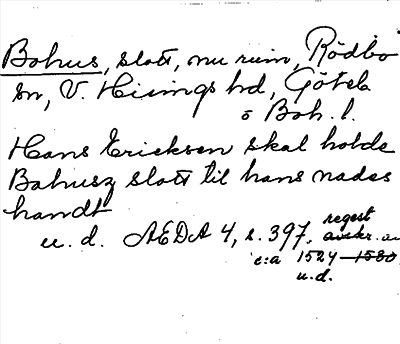 Bohus, slott, nu ruin, Rödbo
sn, V. Hisings hd, Göteb
o Boh. l.
Hans Ericksen skal holde
Bahusz slott til hans nades
handt
u. d. AEDA 4, s. 397, regest
avskr. av
c:a 1524-1580
u.d.